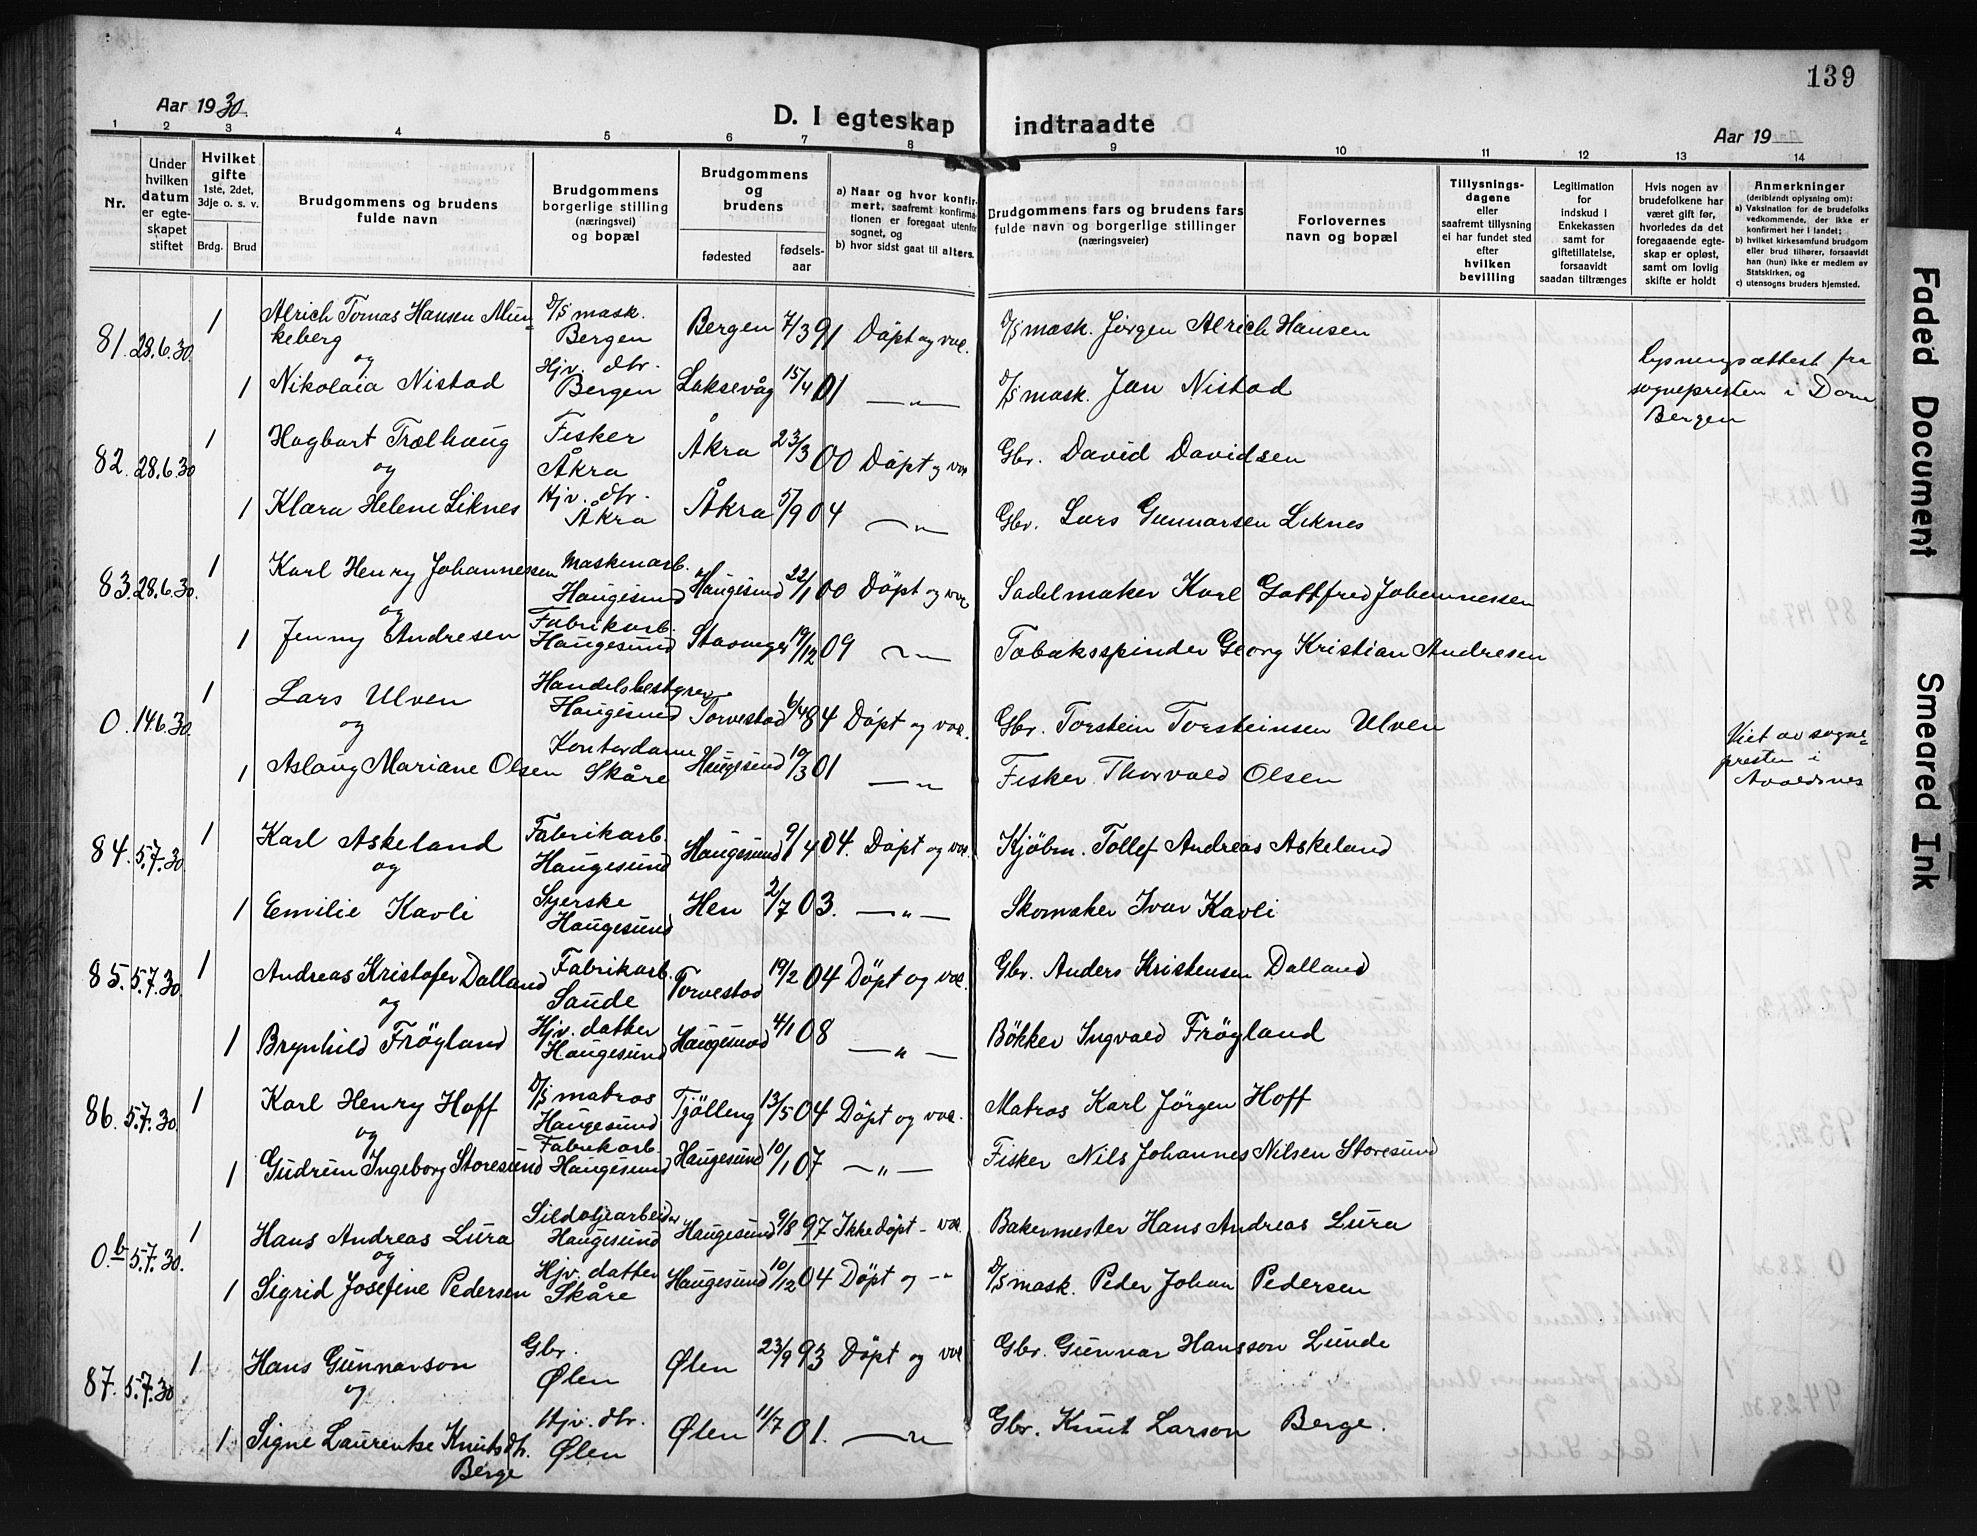 139
Aar 1930.
D. I egteskap indtraadte
Aar 19
1 2 3 4 5 6 7 8 9 10 11 12 13 14
Nr.
Under hvilken datum er egteskapet stiftet
Hvilket gifte
1ste, 2det, 3dje o. s. v.
Brdg. Brud
Brudgommens og brudens fulde navn
Brudgommens borgerlige stilling (næringsvei) og bopæl
Brudgommens og brudens
fødested
fødselsaar
a) Naar og hvor konfirmert, saafremt konfirmationen er foregaat utenfor sognet, og
b) hvor sidst gaat til alters.
Brudgommens fars og brudens fars fulde navn og borgerlige stillinger (næringsveier)
Forlovernes navn og bopæl
Tillysningsdagene eller saafremt tillysning ei har fundet sted efter hvilken bevilling
Legitimation for indskud i Enkekassen samt for giftetillatelse, forsaavidt saadan tiltrænges
Hvis nogen av brudefolkene har været gift før, hvorledes da det foregaaende egteskap er opløst, samt om lovlig skifte er holdt
Anmerkninger
(deriblandt oplysning om):
a) Vaksination for de brudefolks vedkommende, der ikke er konfirmert her i landet;
b) hvilket kirkesamfund brudgom eller brud tilhører, forsaavidt han (hun) ikke er medlem av Statskirken, og
c) utensogns bruders hjemsted.
81. 28.6.30. 1 Alrich Tomas Hansen Munkeberg D/S mask. Bergen Bergen 7/3 91 Döpt og vac. D/S mask. Jörgen Alrich Hansen
og
1 Nikolaia Nistad Hjv. dtr. Bergen Laksevåg 15/4 01 — " — D/S mask. Jan Nistad
Lysningsattest fra sognepresten i Dom Bergen
82. 28.6.30 1 Hagbart Trælhaug Fisker Åkra Åkra 23/3 00 Döpt og vac Gbr. David Davidsen
og
1 Klara Helene Liknes Hjv. dtr. Åkra Åkra 5/9 04 — " Gbr. Lars Gunnarsen Liknes
83. 28.6.30. 1 Karl Henry Johannessen Maskinarb. Haugesund Haugesund 22/1 00 Döpt og vac Sadelmaker Karl Gottfred Johannessen
og
1 Jenny Andresen Fabrikarb. Haugesund Stavanger 19/12 09 — " — Tobaksspinder Georg Kristian Andresen
0. 14.6.30. 1 Lars Ulven Handelsbestyrer Haugesund Torvestad 6/4 84 Döpt og vac. Gbr. Torstein Torsteinsen Ulven
og
1 Aslaug Mariane Olsen Kontordame Skåre Haugesund 10/3 01 — " Fisker Thorvald Olsen
Viet av sognepresten i Avaldsnes
84. 5.7.30 1 Karl Askeland Fabrikarb. Haugesund Haugesund 9/4 04. Döpt og vac. Kjöbm. Tollef Andreas Askeland
og
1 Emilie Kavli Syerske Haugesund Hen 2/7 03. — " — Skomaker Ivar Kavli
85. 5.7.30. 1 Andreas Kristofer Dalland Fabrikarb. Saude Torvestad 19/2 04 Döpt og vac. Gbr. Anders Kristensen Dalland
og
1 Brynhild Fröyland Hjv. datter Haugesund Haugesund 4/1 08 — " — Bökker Ingvald Fröyland
86. 5.7.30 1 Karl Henry Hoff D/S matros Haugesund Tjölling 13/5 04 Döpt og vac. Matros Karl Jörgen Hoff
og
1 Gudrun Ingeborg Storesund Fabrikarb. Haugesund Haugesund 10/1 07 — " — Fisker Nils Johannes Nilsen Storesund
0.b 5.7.30. 1 Hans Andreas Lura Sildoljearbeider Haugesund Haugesund 9/8 97 Ikke döpt - vac. Bakermester Hans Andreas Lura
og
1 Sigrid Josefine Pedersen Hjv. datter Skåre Haugesund 10/12 04 Döpt og — " D/S mask. Peder Johan Pedersen
87. 5.7.30 1 Hans Gunnarson Gbr. Ølen Ølen 23/9 93 Döpt og vac Gbr. Gunnar Hansson Lunde
og
1 Signe Laurentse Knutsdtr. Berge Hjv. dtr. Ølen Ølen 11/7 01. — " Gbr. Knut Larson Berge.
Faded Document
Smeared Ink